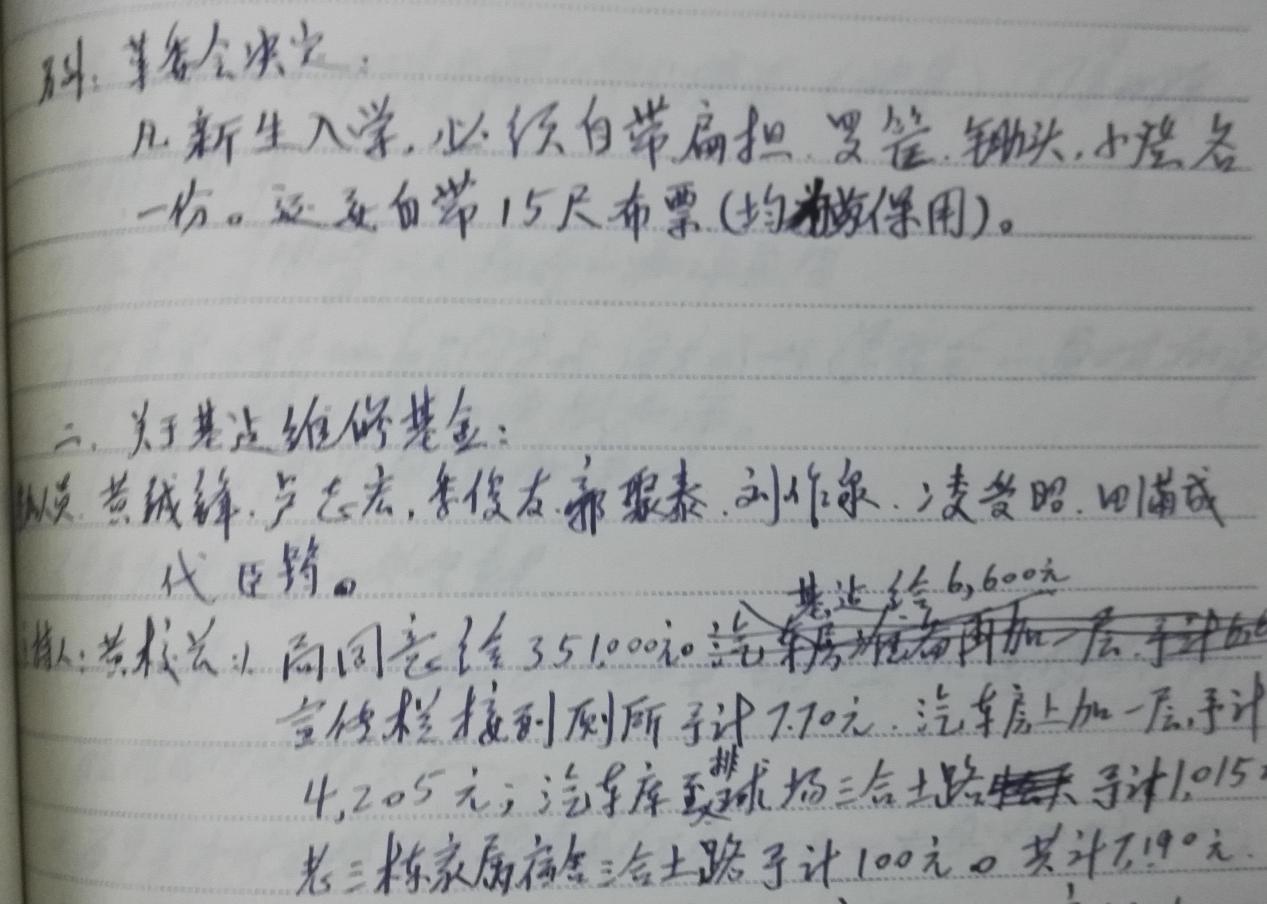 另外：革委会决定：
凡新生入学，必须自带扁担、罗筐、锄头、小凳各
一份。还要自带15尺布票（均劳保用）。
二、关于基建维修基金：
员：黄绒锋、卢志宏、李俊友、郭聚泰、刘作泉、凌受昭、田满成
代臣骑。
基建给6,600元
主持人：黄校长：1、局同意给351,000元。汽车房准备再加一层，予计
宣传栏接到厕所予计770元，汽车房上加一层，予计
4,205元；汽车库至排球场三合土路予计1,015
老三栋家属宿舍三合土路予计100元。共计7,190元